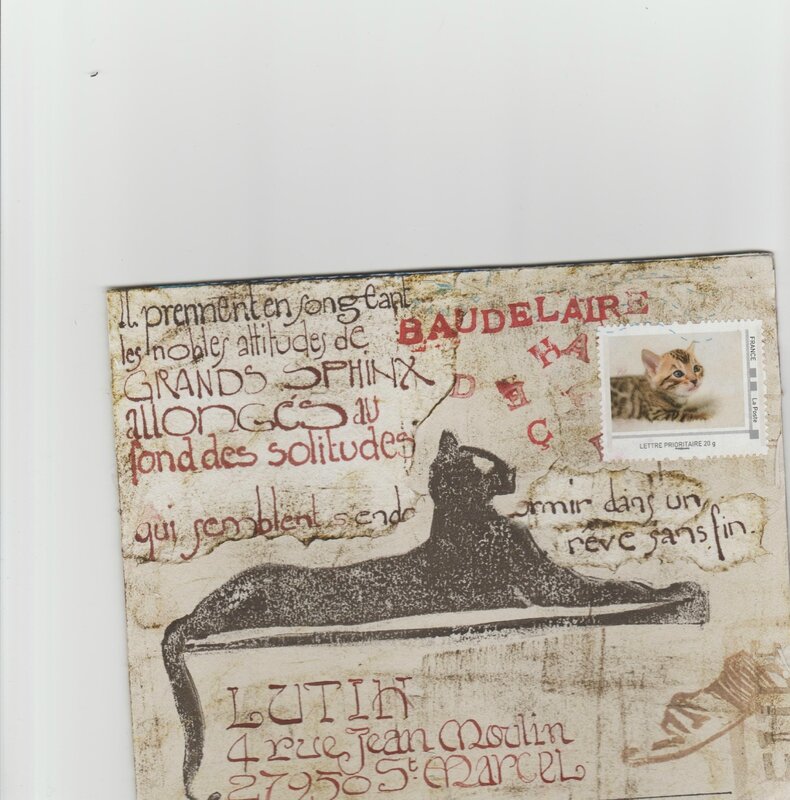 Il prennent en songeant
les nobles attitudes de
GRANDS SPHINX
allongés au
fond des solitudes
qui semblent s'endormir dans un
rêve sans fin.
BAUDELAIRE
D E H A
Ç A
FRANCE
La Poste
LETTRE PRIORITAIRE 20 g
LUTIN
4 rue Jean Moulin
27950 St MARCEL